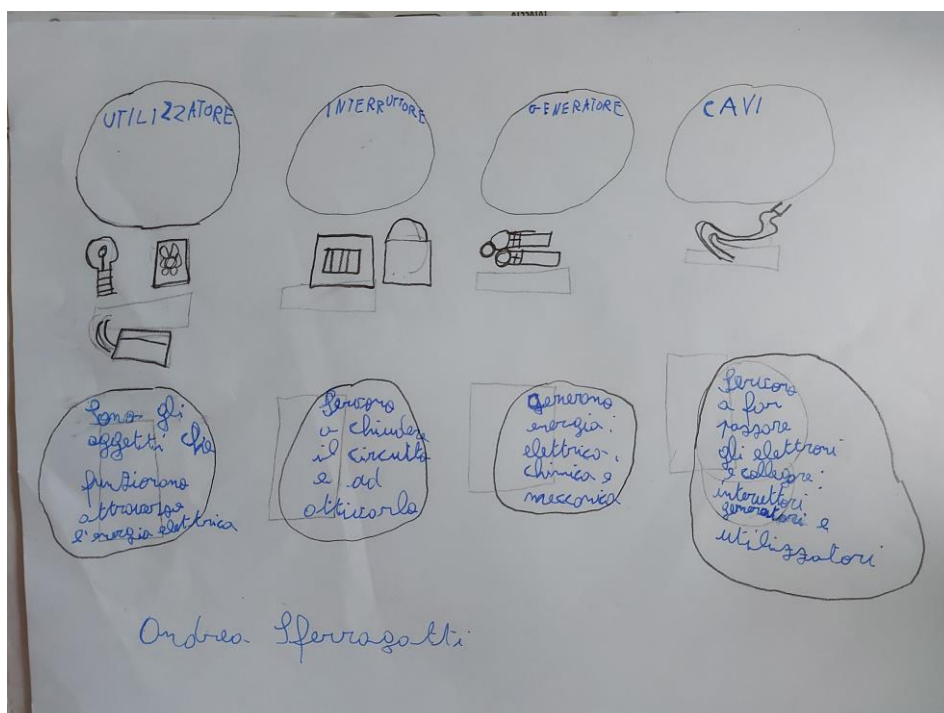 UTILIZZATORE
INTERRUTTORE
GENERATORE
CAVI
Sono gli
oggetti che
funzionano
attraverso
l'energia elettrica
servono
a chiudere
il circuito
e ad
attivarlo
generano
energia.
elettrica,
chimica e
meccanica
servono
a far
passare
gli elettroni
e collegare:
interuttori
generatori e
utilizzatori
Andrea Sferragatti